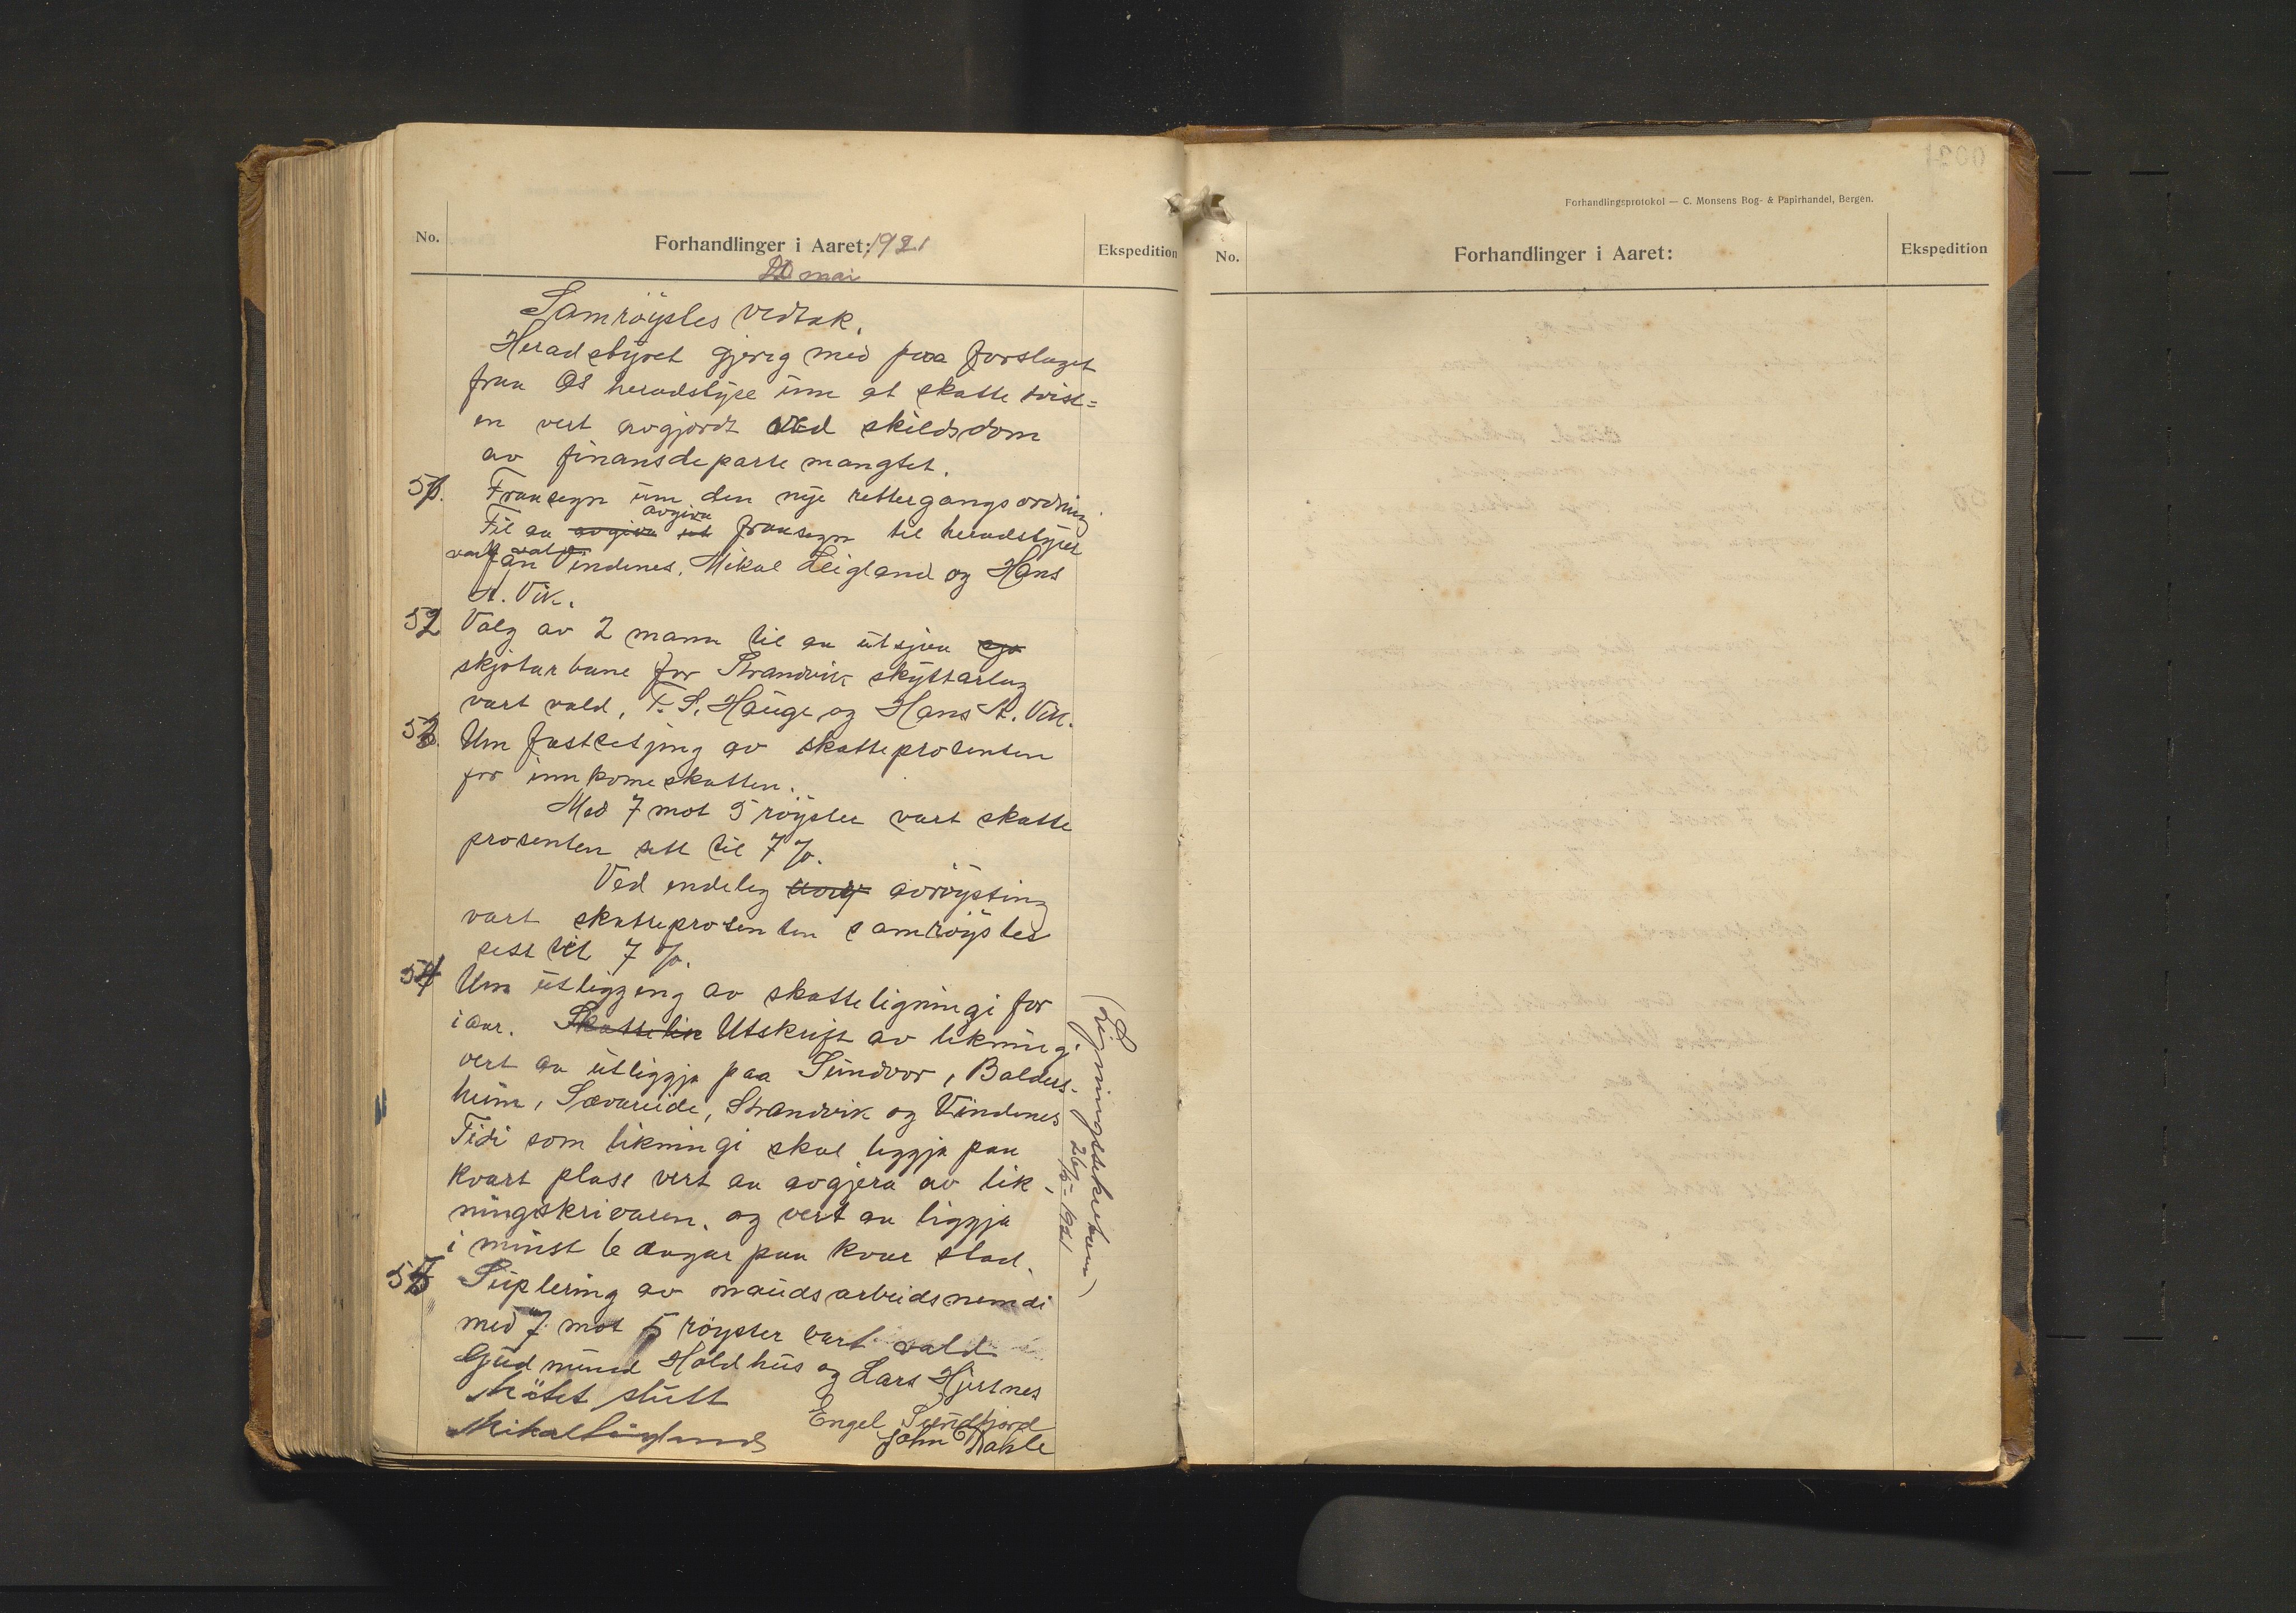 No.
Forhandlinger i Aaret: 1921
Ekspedition
20 mai
Samröystes vedtak.
Heradstyret gjeng med paa forslaget
fraa Os heradstyre um at skatte tvist=
en vert avgjordt ved skildsdom
av finansdepartemangtet.
51. Fraasegn um den nye rettergangsordning
avgiva
Til aa avgiva ut fraasegn til heradstyret
vart vald
Jan Vindenes, Mikal Leigland og Hans
A. Vik.
52 Valg av 2 mann til aa utsjaa sjo
skjotarbane for Strandvik skyttarlag
vart vald, T. S. Hauge og Hans A. Vik.
53. Um fastsetjing av skatteprosenten
for innkomeskatten.
Med 7 mot 5 röyster vart skatte
prosenten sett til 7 %.
Ved endeleg avröysting
vart skatteprosenten samröystes
sett til 7 %.
54 Um utligging av skatteligningi for
iaar. Skattelik Utskrift av likningi
vert aa utliggja paa Sundvor, Balders-
heim, Sævareide, Strandvik og Vindenes
Tidi som likningi skal liggja paa
kvart plass vert aa avgjera av lik-
ningskrivaren, og vert aa liggja
i minst 6 dagar paa kvar stad.
55 Suplering av naudsarbeidsnemdi
med 7 mot 5 röyster vart vald
Gudmund Holdhus og Lars Hjertnes
Mötet slutt
Engel Sundfjord
Mikal Leigland
John Dahle
(Ligningssekretæren)
26/5-1921
0021
Forhandlingsprotokol — C. Monsens Bog- & Papirhandel, Bergen.
No.
Forhandlinger i Aaret:
Ekspedition